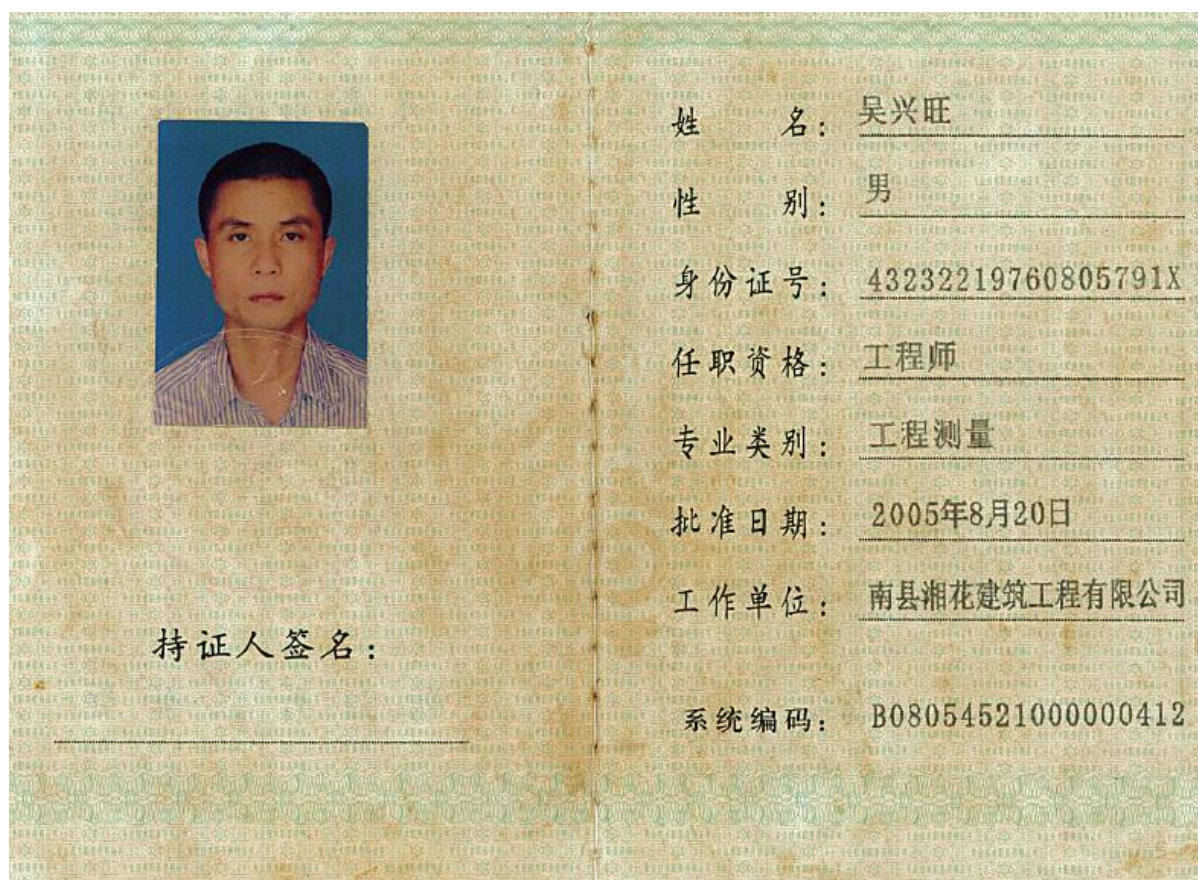 持证人签名：
姓名：吴兴旺
性别：男
身份证号：43232219760805791X
任职资格：工程师
专业类别：工程测量
批准日期：2005年8月20日
工作单位：南县湘花建筑工程有限公司
系统编码：B08054521000000412